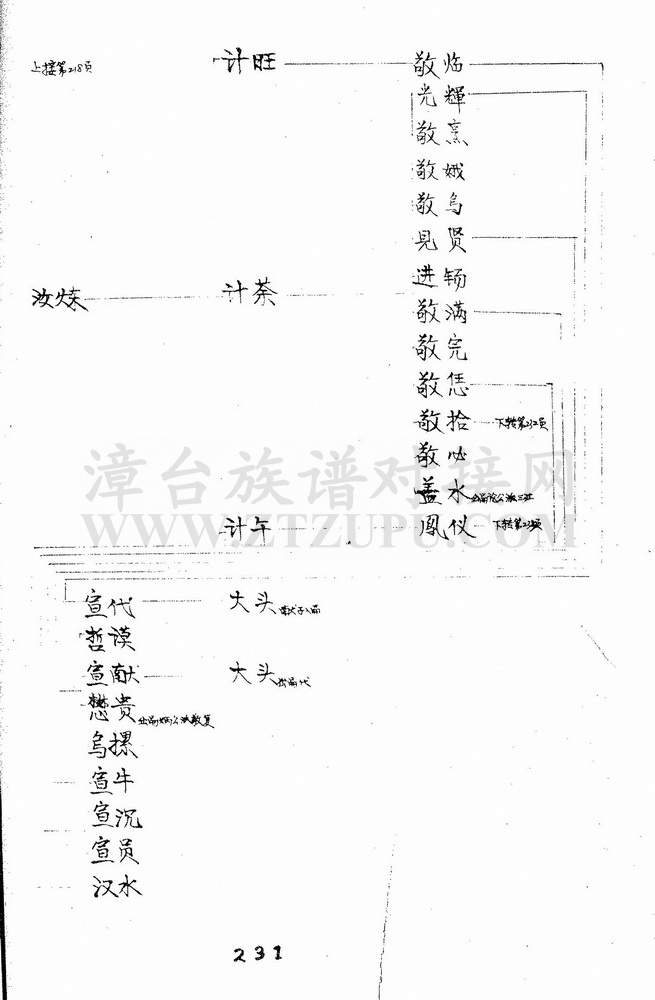 上接第218页
计旺 敬临
光輝
敬烹
敬娥
敬乌
见贤
进钖
汝炼 计荼
敬满
敬完
敬恁
敬拾 下转第232页
敬必
盖水
计午 凤仪
漳台族谱对接网
WWW.ZTZUPU.COM
宣代 大头
哲谟
宣献 大头
懋贵
乌摞
宣牛
宣沉
宣员
汉水
231